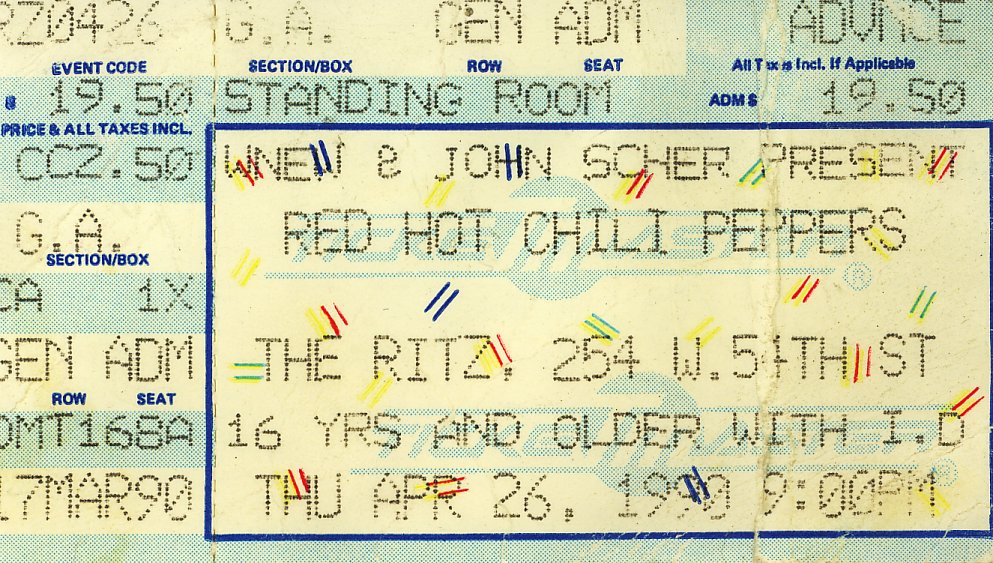 RZ0426 G.A. GEN ADM ADVNCE
EVENT CODE SECTION/BOX ROW SEAT All Taxes Incl. If Applicable
$ 19.50 STANDING ROOM ADM $ 19.50
PRICE & ALL TAXES INCL.
CC2.50
G.A.
SECTION/BOX
CA 1X
GEN ADM
ROW SEAT
OMT168A
17MAR90
WNEW & JOHN SCHER PRESENT
RED HOT CHILI PEPPERS
THE RITZ. 254 W.54TH ST
16 YRS AND OLDER WITH I.D
THU APR 26, 1990 9:00PM
TICKETMASTER ®
TICKETMASTER ®